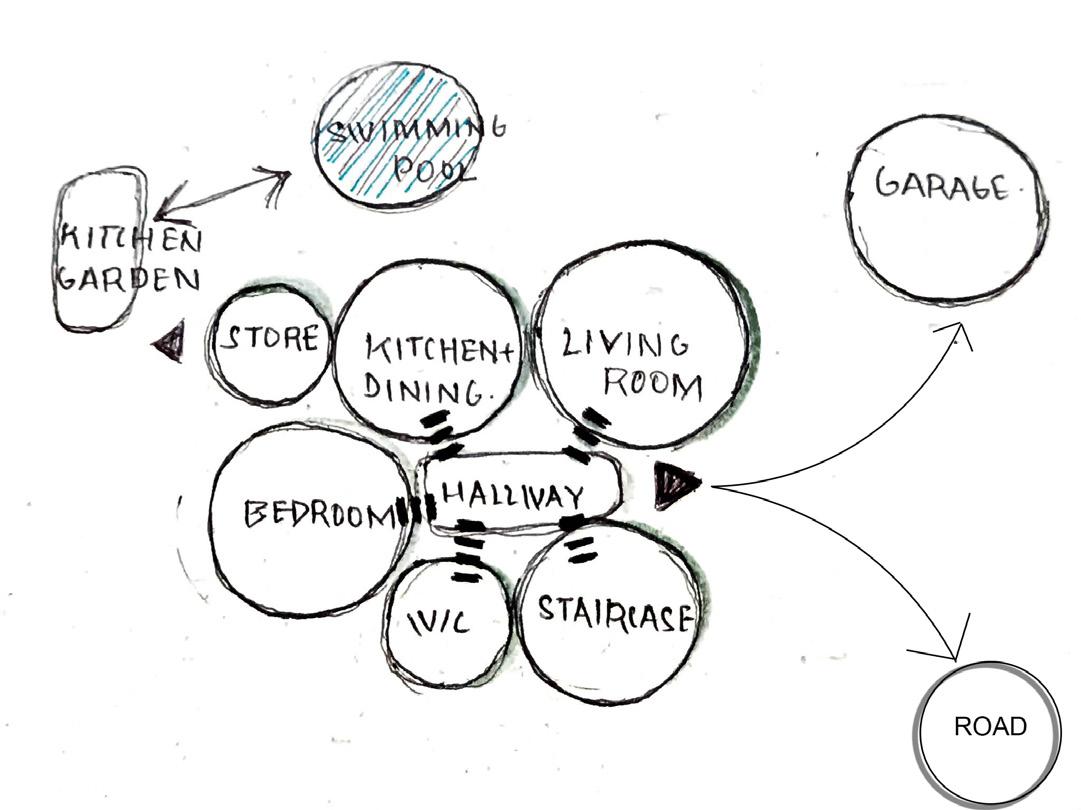 SWIMMING
POOL
GARAGE.
KITCHEN
GARDEN
STORE
KITCHEN+
DINING.
LIVING
ROOM
BEDROOM
HALLWAY
W/C
STAIRCASE
ROAD